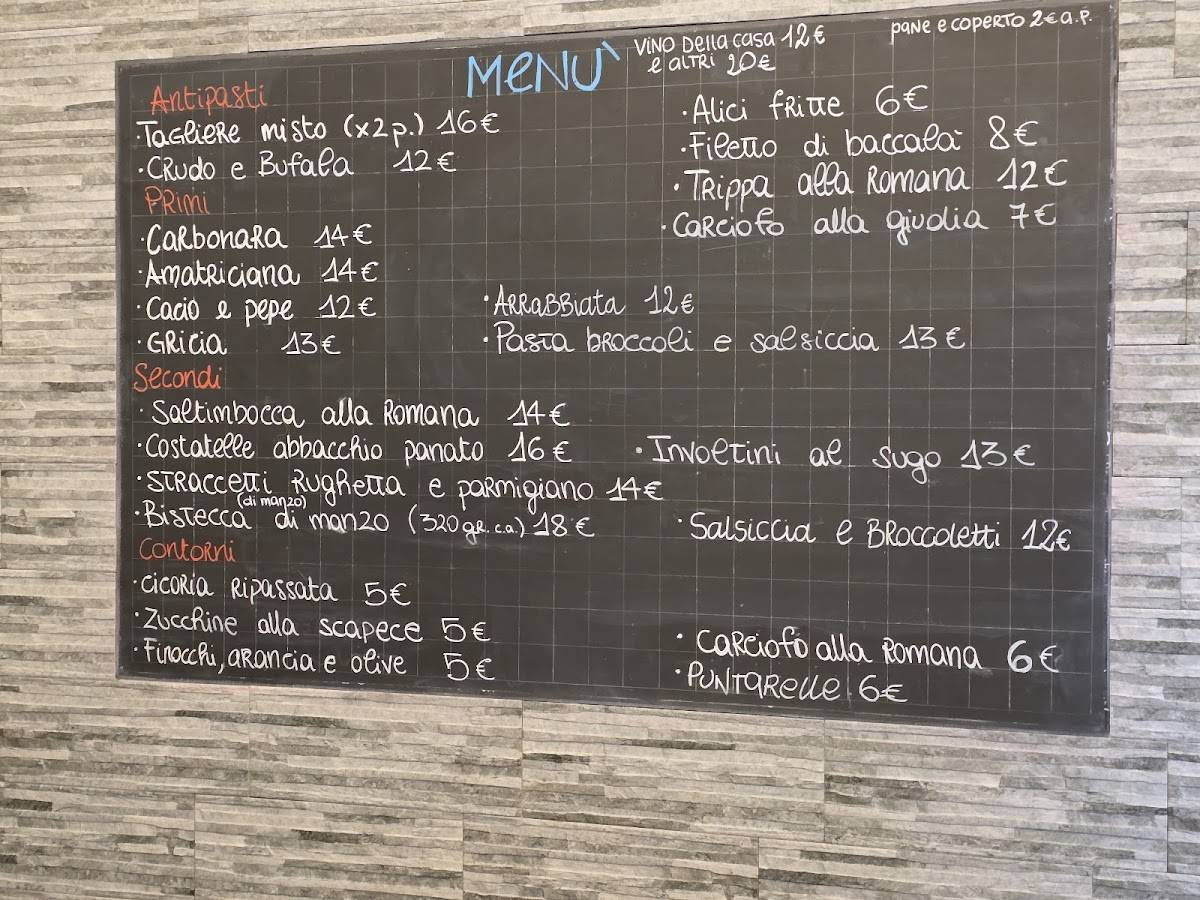 MENU'
VINO DELLA CASA 12€
e ALTRI 20€
PANE E COPERTO 2€ a.p.
Antipasti
·TAGLIERE misto (x2p.) 16€
·CRUDO e Bufala 12€
·Alici fritte 6€
·Filetto di baccalà 8€
·Trippa alla Romana 12€
·Carciofo alla giudia 7€
Primi
·Carbonara 14€
·Amatriciana 14€
·Cacio e pepe 12€
·Gricia 13€
·Arrabbiata 12€
·Pasta broccoli e salsiccia 13€
Secondi
·Saltimbocca alla Romana 14€
·Costatelle abbacchio panato 16€
·Straccetti Rughetta e parmigiano 14€
(di manzo)
·Bistecca di manzo (320gr.ca.) 18€
·Involtini al sugo 13€
·Salsiccia e Broccoletti 12€
Contorni
·Cicoria Ripassata 5€
·Zucchine alla scapece 5€
·Finocchi, arancia e olive 5€
·Carciofo alla Romana 6€
·Puntarelle 6€